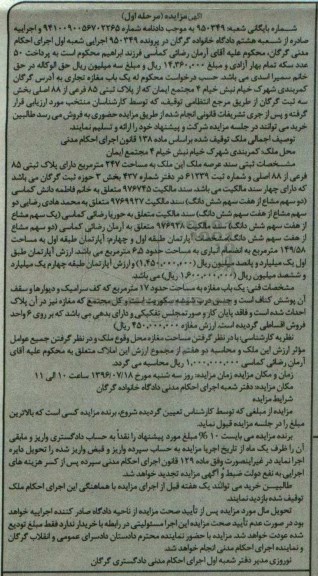 آگهی مزایده (مرحله اول)
شماره بایگانی شعبه ۹۵۰۳۴۹ به موجب دادنامه شماره ۹۴۱۰۰۹۰۰۵۶۷۰۲۲۶۵ و اجراییه
صادره از شعبه هشتم دادگاه خانواده گرگان در پرونده ۹۵۰۳۴۹ اجرایی شعبه اول اجرای احکام
مدنی گرگان، محکوم علیه آقای آرمان رضائی کماسی فرزند ابراهیم محکوم است به پرداخت ۵۰
عدد سکه تمام بهار آزادی و مبلغ ۱۴,۳۶۰,۰۰۰ ریال و مبلغ سه میلیون ریال حق الوکاله در حق
خانم سمیرا اسدی می باشد. حسب درخواست محکوم له یک باب مغازه تجاری به آدرس گرگان
کمربندی شهرک خیام نبش خیام ۴ مجتمع ایمان که از پلاک ثبتی ۸۵ فرعی از ۸۸ اصلی بخش
سه ثبت گرگان از طریق مرجع انتظامی توقیف، که توسط کارشناس منتخب مورد ارزیابی قرار
گرفته و پس از جری تشریفات قانونی انجام شده از طریق مزایده حضوری به فروش می رسد طالبین
خرید می توانند در جلسه مزایده شرکت و پیشنهاد خود را ارائه و تسلیم نمایند.
توصیف اجمالی ملک توقیف شده براساس ماده ۱۳۸ قانون اجرای احکام مدنی
محل ملک: کمربندی شهرک خیام نبش خیام ۴ مجتمع ایمان
مشخصات ثبتی سند عرصه ملک: این ملک به مساحت ۲۴۷ مترمربع دارای پلاک ثبتی ۸۵
فرعی از ۸۸ اصلی و شماره ثبت ۶۱۲۳۹ در دفتر شماره ۴۳۷ بخش ۳ حوزه ثبت گرگان می باشد
که دارای چهار سند مالکیت می باشد، سند مالکیت ۹۷۶۷۴۵ متعلق به خانم فاطمه دانش کماسی
(دو سهم مشاع از هفت سهم شش دانگ) سند مالکیت ۹۷۶۹۹۲۷ متعلق به محمد هادی رضایی دو
سهم مشاع از هفت سهم شش دانگ) سند مالکیت متعلق به حوریا رضائی کماسی (یک سهم مشاع
از هفت سهم شش دانگ) سند مالکیت ۹۷۶۹۲۸ متعلق به آرمان رضائی کماسی (دو سهم مشاع
از هفت سهم شش دانگ) مشخصات آپارتمان طبقه اول و چهارم: آپارتمان طبقه اول به مساحت
۱۴۹/۵۸ مترمربع به انضمام انباری به مساحت حدود ۶/۵ مترمربع می باشد. ارزش آپارتمان طبق
اول یک میلیارد و پانصد میلیون ریال (۱,۴۵۰,۰۰۰,۰۰۰ ریال) و ارزش آپارتمان طبقه چهارم یک میلیارد
و ششصد میلیون ریال (۱,۶۰۰,۰۰۰,۰۰۰ ریال) می باشد.
مشخصات فنی: یک باب مغازه به مساحت حدود ۱۷ مترمربع که کف سرامیک و دیوارها و سقف
احداث شده است و فاقد پایان کار و صورتمجلس تفکیکی و دارای بدهی می باشد که بر روی ۶ واحد
فروش اقساطی گردیده است. ارزش مغازه ۴۵۰,۰۰۰,۰۰۰ ریال)
نظریه کارشناسی: با در نظر گرفتن مساحت مغازه محل وقوع ملک و در نظر گرفتن جمیع عوامل
مؤثر ارزش این ملک و محاسبه دو هفتم از مجموع ارزش این املاک متعلق به محکوم علیه آقای
آرمان رضائی کماسی ۱,۰۰۰,۰۰۰,۰۰۰ ریال محاسبه می گردد.
زمان و مکان مزایده: زمان مزایده: روز سه شنبه مورخ ۱۳۹۶/۰۷/۱۸ ساعت ۱۰ الی ۱۱
مکان مزایده: دفتر شعبه اجرای احکام مدنی دادگاه خانواده گرگان
شرایط مزایده
مزایده از مبلغی که توسط کارشناس تعیین گردیده شروع، برنده مزایده کسی است که بالاترین
مبلغ را در جلسه مزایده قبول نماید.
برنده مزایده می بایست ۱۰% مبلغ مورد پیشنهاد را نقداً به حساب دادگستری واریز و مابقی
آن را ظرف یک ماه از تاریخ اجرای مزایده به حساب سپرده واریز و قبض واریز شده را تحویل دایره
اجرا نماید در غیر اینصورت وفق ماده ۱۲۹ قانون اجرای احکام مدنی سپرده پس از کسر هزینه های
اجرایی به نفع دولت ضبط و آگهی مزایده تجدید خواهد شد.
طالبین خرید می توانند یک هفته قبل از اجرای مزایده با هماهنگی این اجرای احکام ملک
توقیف شده بازدید نمایند.
تحویل مال مورد مزایده پس از تأیید صحت مزایده از ناحیه دادگاه صادر کننده اجراییه خواهد
بود در صورت عدم تأیید صحت مزایده این اجرا مسئولیتی در رابطه با خریدار ندارد فقط مبلغ تودیع
شده عودت خواهد شد. مزایده با حضور نماینده محترم دادستان دادسرای عمومی و انقلاب گرگان
و نماینده اجرای احکام مدنی انجام خواهد شد.
نوروزی مدیر دفتر شعبه اول اجرای احکام مدنی دادگستری گرگان